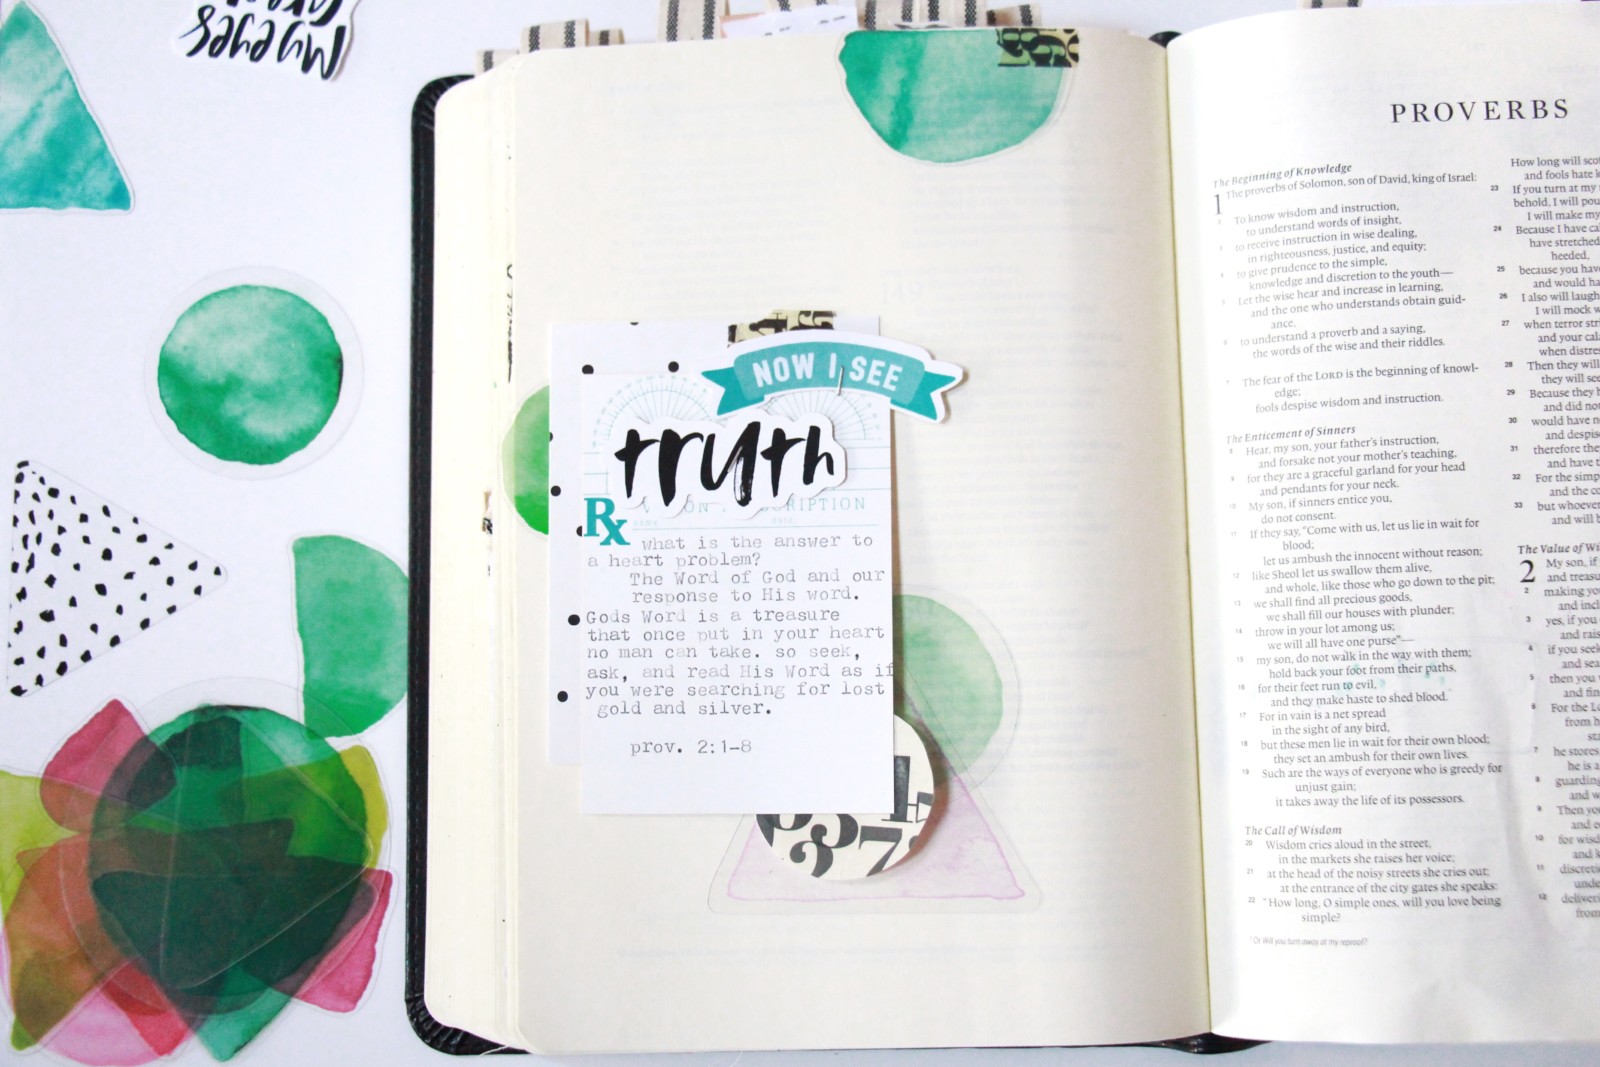 My eyes
NOW I SEE
truth
Rx
name
date
what is the answer to
a heart problem?
The Word of God and our
response to His word.
Gods Word is a treasure
that once put in your heart
no man can take. so seek,
ask, and read His Word as if
you were searching for lost
gold and silver.
prov. 2:1-8
PROVERBS
The Beginning of Knowledge
1 The proverbs of Solomon, son of David, king of Israel:
2 To know wisdom and instruction,
to understand words of insight,
3 to receive instruction in wise dealing,
in righteousness, justice, and equity;
4 to give prudence to the simple,
knowledge and discretion to the youth—
5 Let the wise hear and increase in learning,
and the one who understands obtain guid-
ance,
6 to understand a proverb and a saying,
the words of the wise and their riddles.
7 The fear of the LORD is the beginning of knowl-
edge;
fools despise wisdom and instruction.
The Enticement of Sinners
8 Hear, my son, your father's instruction,
and forsake not your mother's teaching,
9 for they are a graceful garland for your head
and pendants for your neck.
10 My son, if sinners entice you,
do not consent.
11 If they say, "Come with us, let us lie in wait for
blood;
let us ambush the innocent without reason;
12 like Sheol let us swallow them alive,
and whole, like those who go down to the pit;
13 we shall find all precious goods,
we shall fill our houses with plunder;
14 throw in your lot among us;
we will all have one purse"—
15 my son, do not walk in the way with them;
hold back your foot from their paths,
16 for their feet run to evil,
and they make haste to shed blood.
17 For in vain is a net spread
in the sight of any bird,
18 but these men lie in wait for their own blood;
they set an ambush for their own lives.
19 Such are the ways of everyone who is greedy for
unjust gain;
it takes away the life of its possessors.
The Call of Wisdom
20 Wisdom cries aloud in the street,
in the markets she raises her voice;
21 at the head of the noisy streets she cries out;
at the entrance of the city gates she speaks:
22 "How long, O simple ones, will you love being
simple?
1 Or Will you turn away at my reproof?
How long will
and fools hate
23 If you turn at my
behold, I will
I will make my
24 Because I have
have stretched
heeded,
25 because you have
and would
26 I also will laugh
I will mock
27 when terror
and your
when
28 Then they will
they will
29 Because they
and did
30 would have
and
31 therefore
and have
32 For the
and the
33 but whoever
and will
The Value of
2 My son, if
and
2 making
and
3 yes, if you
and
4 if you seek
and
5 then you
and
6 For the
from
7 he stores
he is
8 guarding
and
9 Then you
and
10 for
and
11
12
from